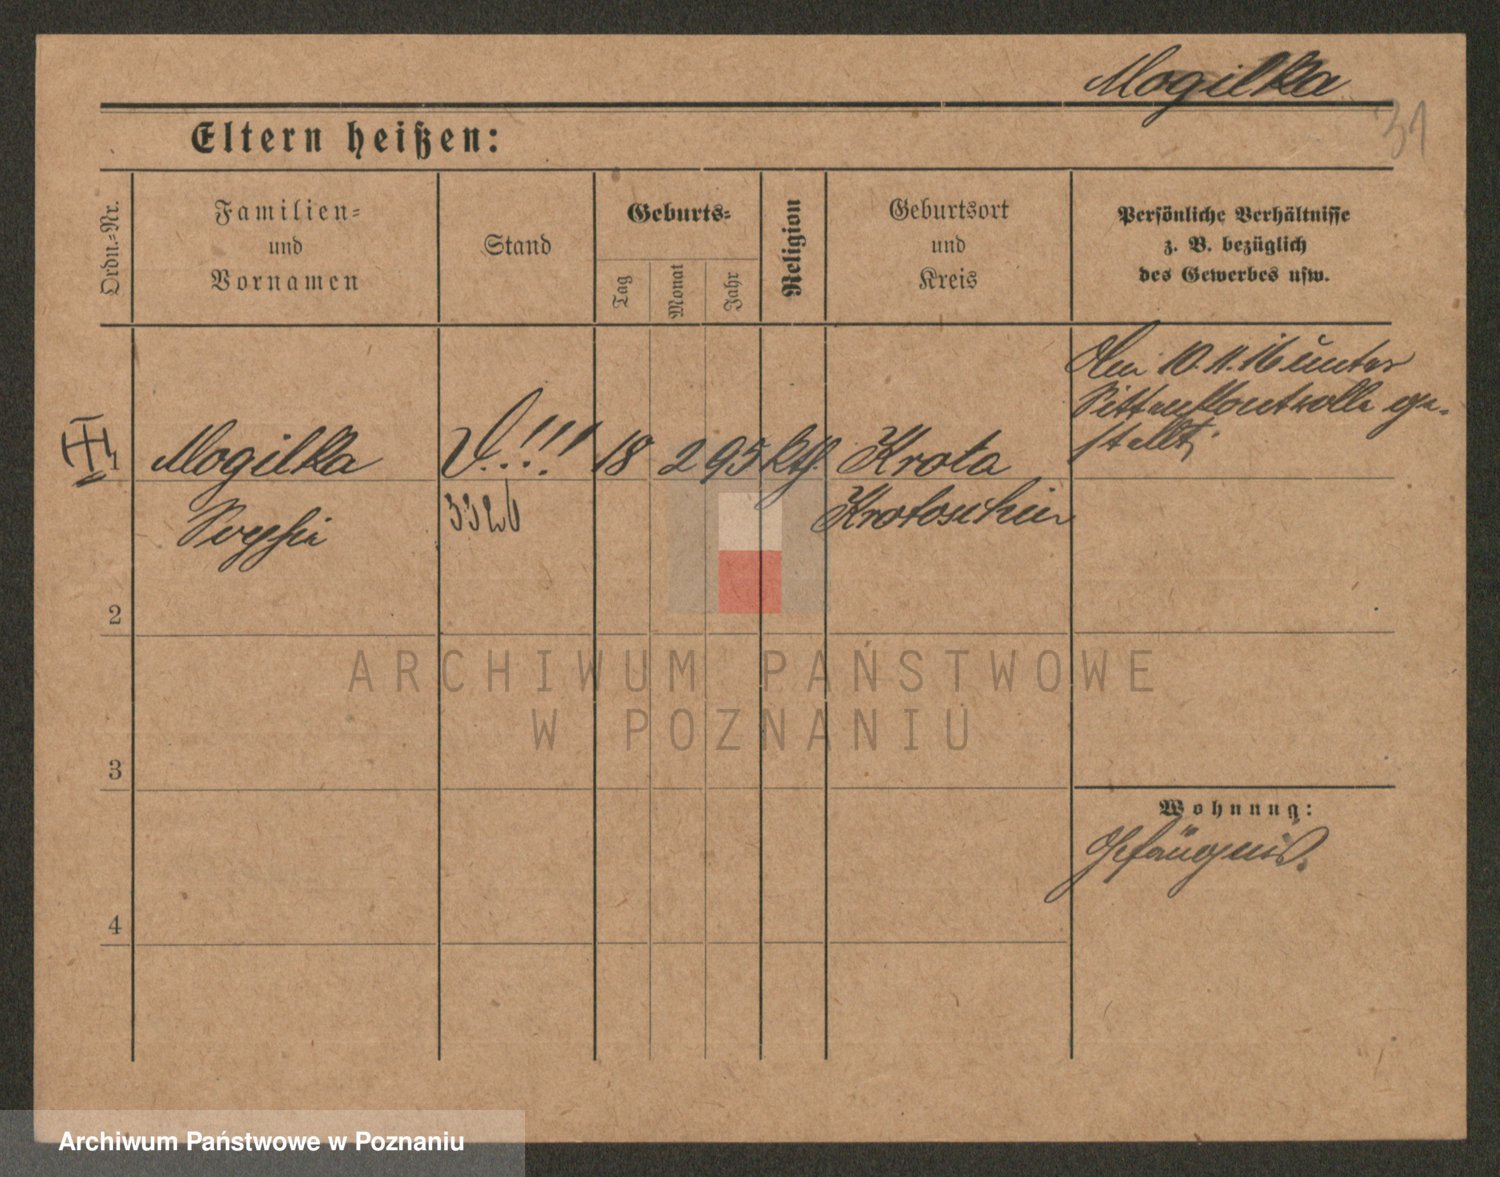 Mogilka
31
Eltern heißen:
Ordn.-Nr.
Familien-
und
Vornamen
Stand
Geburts-
Tag
Monat
Jahr
Religion
Geburtsort
und
Kreis
Persönliche Verhältnisse
z. B. bezüglich
des Gewerbes usw.
Den 10.11.16 unter
Sittenkontrolle ge-
stellt;
Mogilka
18 2 95 kth.
Krota
Sophie
3326
Krotoschin
2
3
4
Wohnung:
Gefängnis.
ARCHIWUM PAŃSTWOWE
W POZNANIU
Archiwum Państwowe w Poznaniu